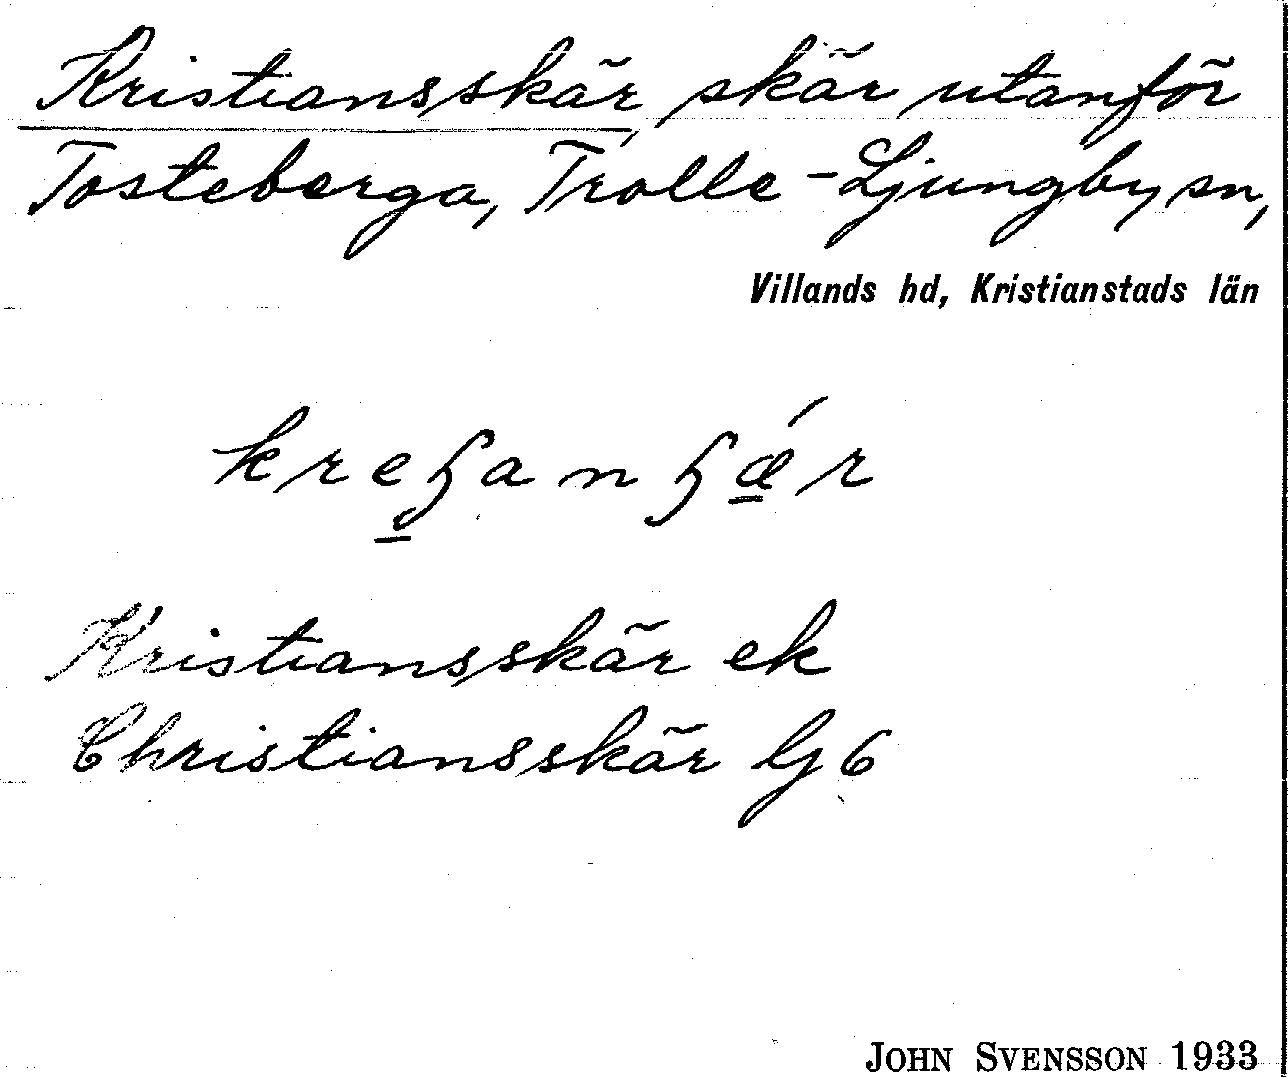 Kristiansskär, skär utanför
Tosteberga, Trolle-Ljungby sn,
Villands hd, Kristianstads län
Kristiansskär ek
Christiansskär lj 6
JOHN SVENSSON 1933